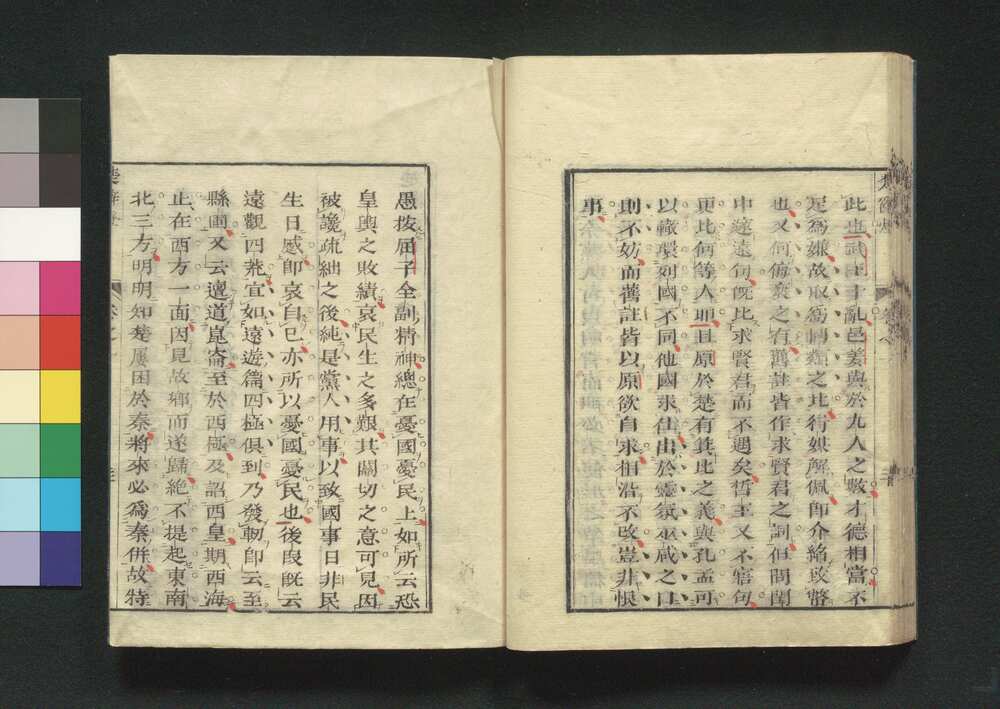 此也武王十亂邑姜與於九人之數才德相當不
足爲嫌故取爲媾之比行媒解佩卽介紹政幣
也又何傷哉之有舊註皆作求賢君之詞但閨闈
中邃遠句旣比求賢君而不遇矣哲王又不寤句
更比何等人耶且原於楚有箕比之義與孔孟可
以轍環列國不同他國求仕出於靈氛巫咸之口
則不妨而舊註皆以原欲自求相沿不改豈非恨
事
愚按屈子全副精神總在憂國憂民上如所云恐
皇輿之敗績哀民生之多艱其關切之意可見因
被讒疏絀之後純是黨人用事以致國事日非民
生日感卽哀自己亦所以憂國憂民也後叚旣云
遠觀四荒宜如遠遊篇四極俱到乃發軔卽云至
縣圃又云邅道崑崙至於西極及詔西皇期西海
止在西方一面因見故鄉而遂歸絶不提起東南
北三方明明知楚屢困於秦將來必爲秦併故特